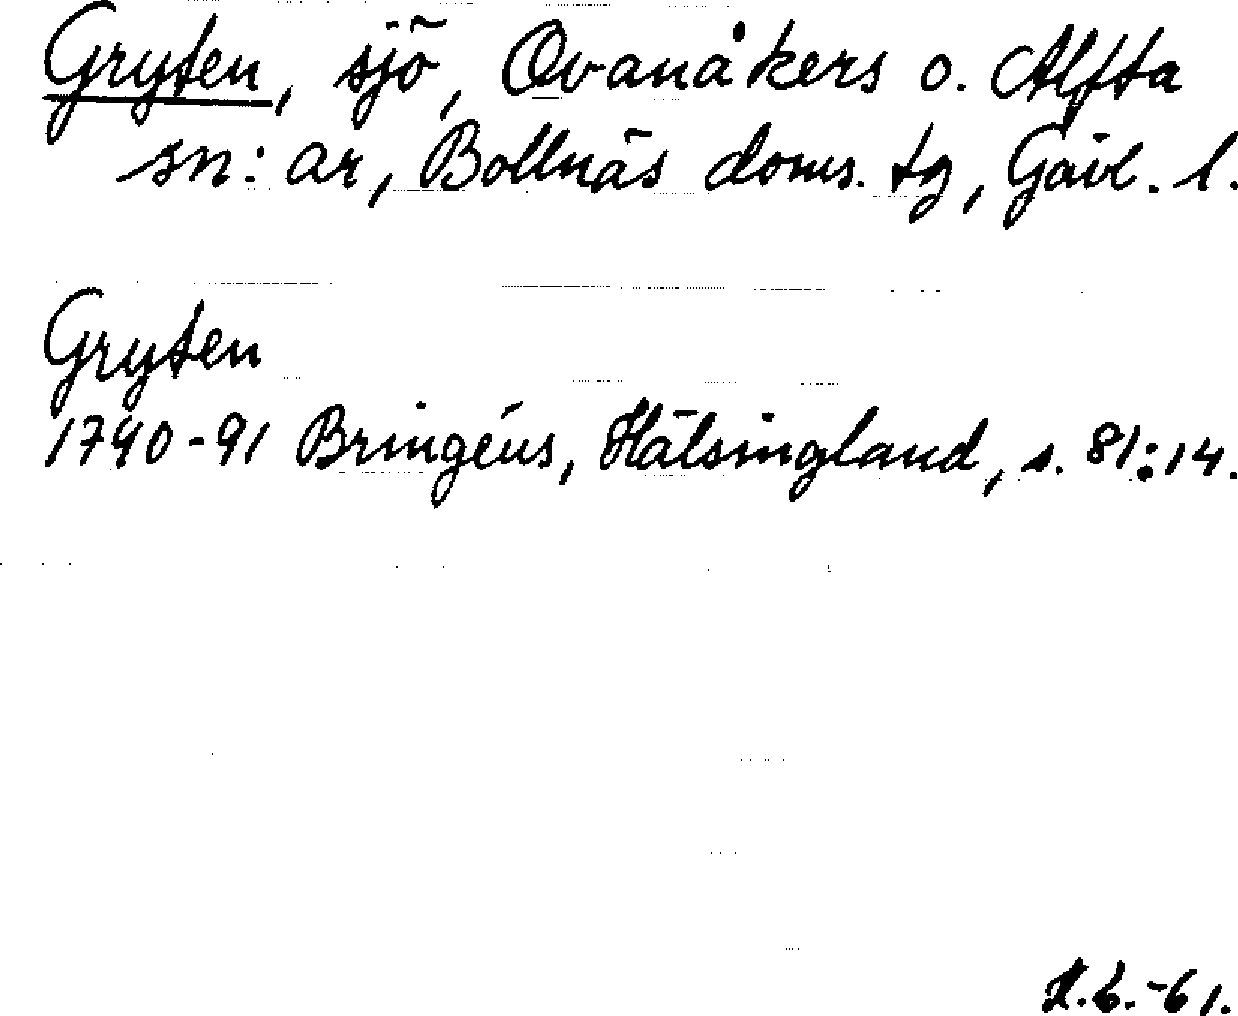 Gryten, sjö, Ovanåkers o. Alfta
sn:ar, Bollnäs doms. tg, Gävl. l.
Gryten
1790-91 Bringéus, Hälsingland, s. 81:14.
-61.